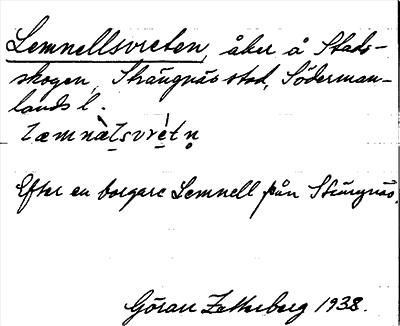 Lemnellsvreten, åker å Stads-
skogen, Strängnäs stad, Söderman-
lands l.
læmnàlsvrètn̥
Efter en borgare Lemnell från Strängnäs.
Göran Zetterberg 1938.